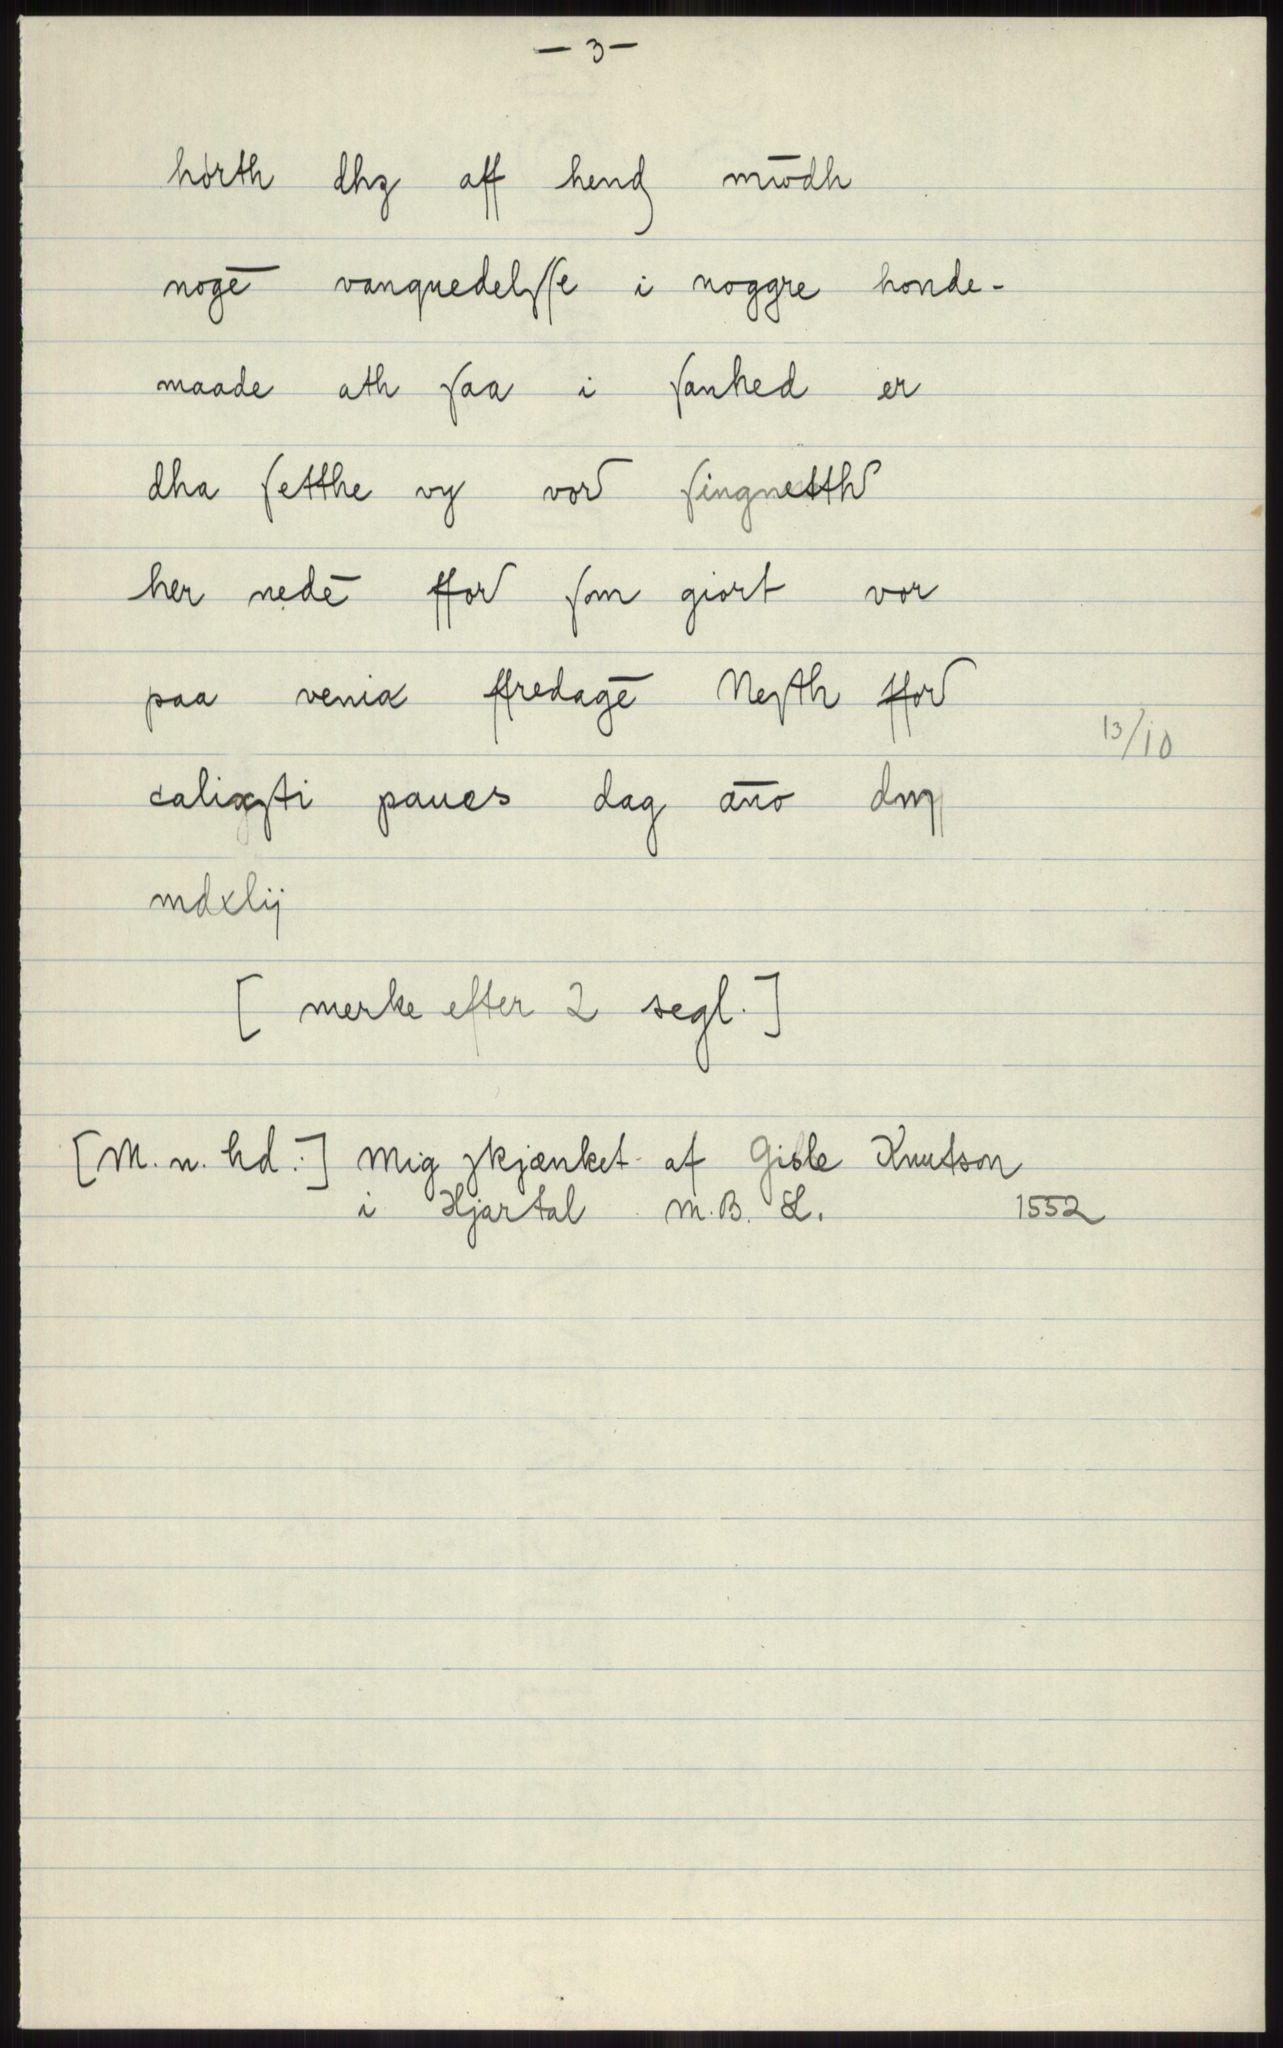 — 3 —
hórth dhz aff hend mwdh
nogē vanquedelſſe i noggre honde-
maade ath ſaa i ſanhed er
dha ſetthe vy vor ſingnetth
her nedē ffor ſom giort vor
paa venia ffredagē Neſth ffor
13/10
calixti paues dag año dm
mdxlij
[ merke efter 2 segl. ]
[M. n. hd.:] Mig skjænket af Gisle Knutson
i Hjartal. M.B. L. 1552